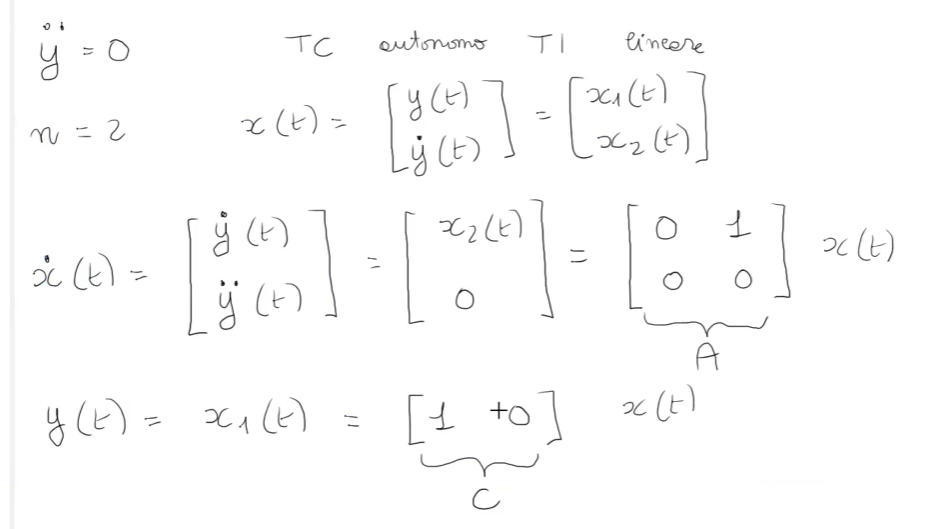 ÿ = 0 TC autonomo TI lineare
n = 2 x(t) = [y(t) ẏ(t)] = [x₁(t) x₂(t)]
ẋ(t) = [ẏ(t) ÿ(t)] = [x₂(t) 0] = [0 1 0 0] x(t)
A
y(t) = x₁(t) = [1 +0] x(t)
C